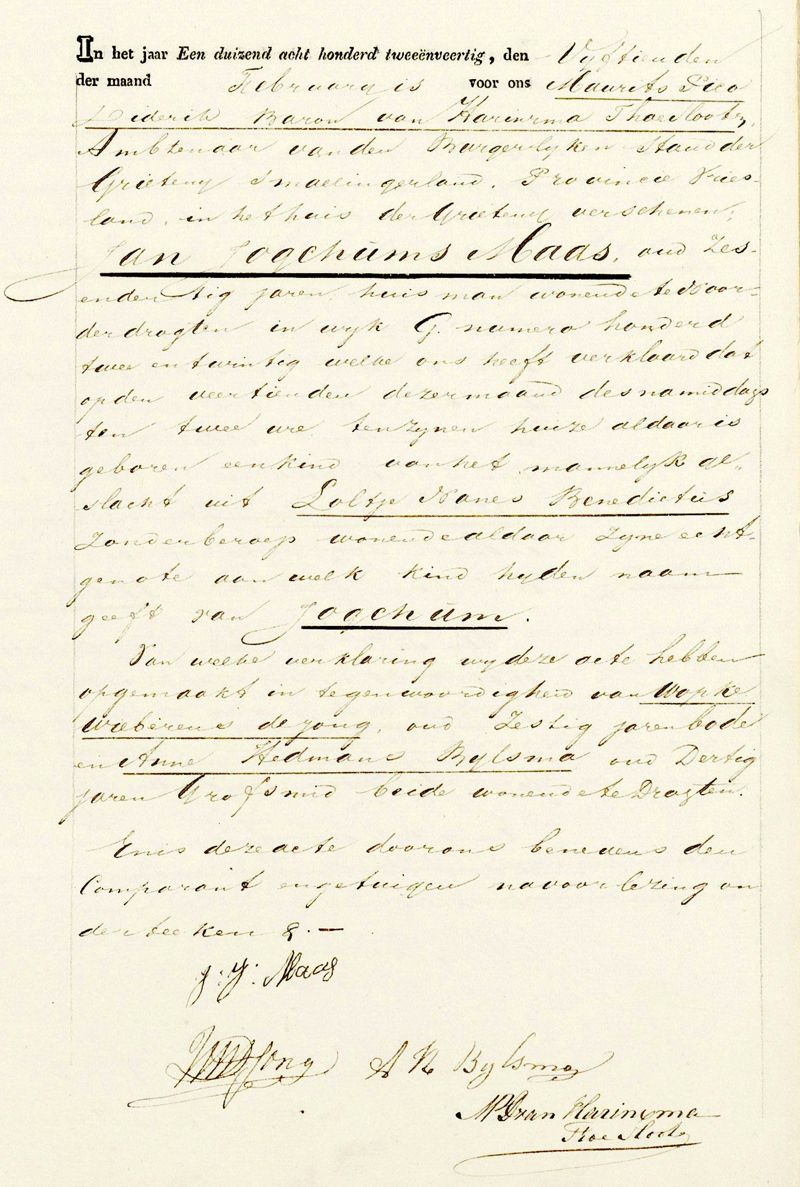 In het jaar Een duizend acht honderd tweeënveertig, den Vyftienden
der maand Februarij is voor ons Maurits Pico
Diderik Baron van Harinxma Thoe Slooten,
Ambtenaar van den Burgerlyken Stand der
Grieteny Smallingerland, Provincie Vries-
land, in het huis der Grieteny verschenen;
Jan Jogchums Maas, oud Zes-
endertig jaren, huisman wonende te Noor-
derdragten in wyk G. numero honderd
twee en twintig welke ons heeft verklaard dat
op den veertienden dezer maand des namiddags
ten twee ure ten zynen huize aldaar is
geboren een kind van het mannelyk ge-
slacht uit Loltje Nanes Benedictus
Zonder beroep wonende aldaar Zyne echt-
genote aan welk kind hy den naam
geeft van Jogchum.
Van welke verklaring wy deze acte hebben
opgemaakt in tegenwoordigheid van Wopke
Wiebirens de Jong, oud Zestig jaren bode
en Anne Hedmans Bylsma oud Dertig
jaren Grofsmid beide wonende te Dragten.
En is deze acte door ons benevens den
Comparant en getuigen na voorlezing on
derteekend. —
J. J. Maas
WW D Jong A R Bylsma
MPD van Harinxma
Thoe Slooten